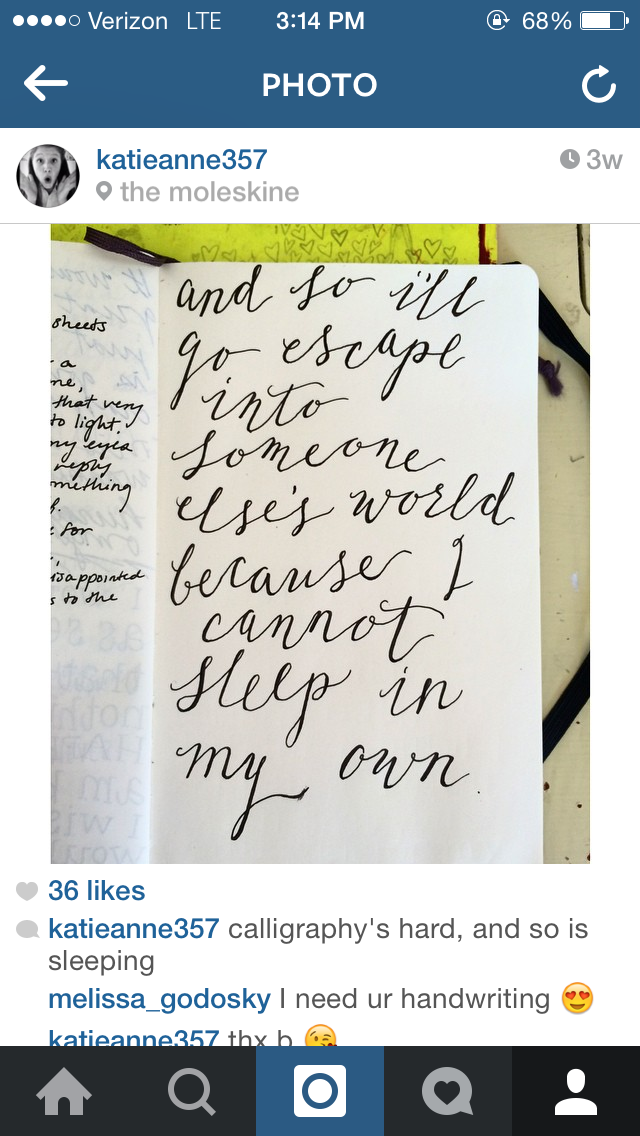 Verizon LTE 3:14 PM 68%
PHOTO
katieanne357 3w
the moleskine
sheets
a
me,
that very
to light.
my eyes
reply
omething
for
disappointed
s to the
and so i'll
go escape
into
someone
else's world
because I
cannot
sleep in
my own.
36 likes
katieanne357 calligraphy's hard, and so is
sleeping
melissa_godosky I need ur handwriting 😍
katieanne357 thx b 😘